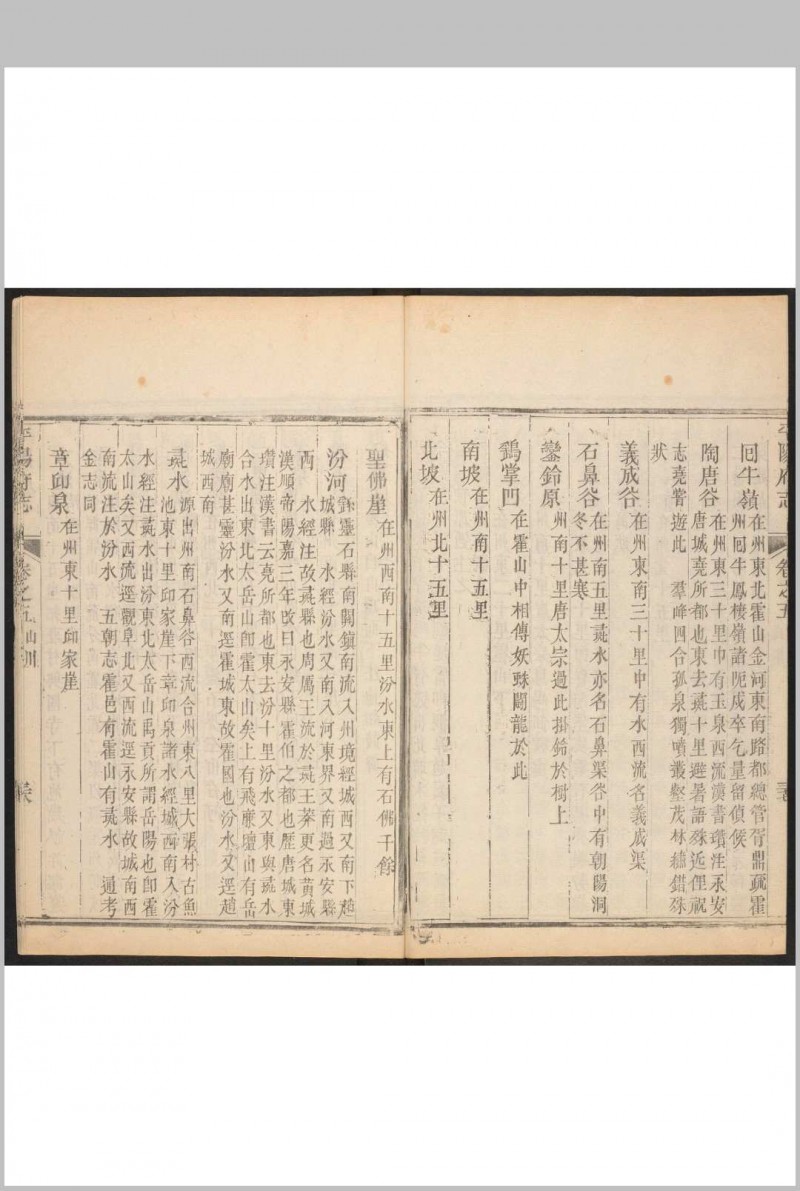 平陽府志
卷之五
回牛嶺 在州東北霍山金河東南路都總管胥鼎疏霍
州回牛鳳棲嶺諸阨戍卒乞量留偵候
陶唐谷 在州東三十里中有玉泉西流漢書瓚注永安
唐城堯所都也東去彘十里避暑語殊近俚祝
志堯嘗遊此 羣峰四合孤泉獨噴叢壑茂林繡錯殊
狀
義成谷 在州東南三十里中有水西流名義成渠
石鼻谷 在州南五里彘水亦名石鼻渠谷中有朝陽洞
冬不甚寒
鑾鈴原 州南十里唐太宗過此掛鈴於樹上
鷂掌凹 在霍山中相傳妖䟽鬭龍於此
南坡 在州南十五里
北坡 在州北十五里
聖佛崖 在州西南十五里汾水東上有石佛千餘
汾河 繇靈石縣南關鎮南流入州境經城西又南下趙
城縣 水經汾水又南入河東界又南過永安縣
西 水經注故彘縣也周厲王流於彘王莽更名黃城
漢順帝陽嘉三年改曰永安縣霍伯之都也歷唐城東
瓚注漢書云堯所都也東去汾十里汾水又東與彘水
合水出東北太岳山卽霍太山矣上有飛廉壇山有岳
廟廟甚靈汾水又南逕霍城東故霍國也汾水又逕趙
城西南
彘水 源出州南石鼻谷西流合州東八里大張村古魚
池東十里邱家崖下章印泉諸水經城西南入汾
水經注彘水出汾東北太岳山禹貢所謂岳陽也卽霍
太山矣又西流逕觀阜北又西流逕永安縣故城南西
南流注於汾水 五朝志霍邑有霍山有彘水 通考
金志同
章印泉 在州東十里邱家崖
平陽府志
卷之五 山川